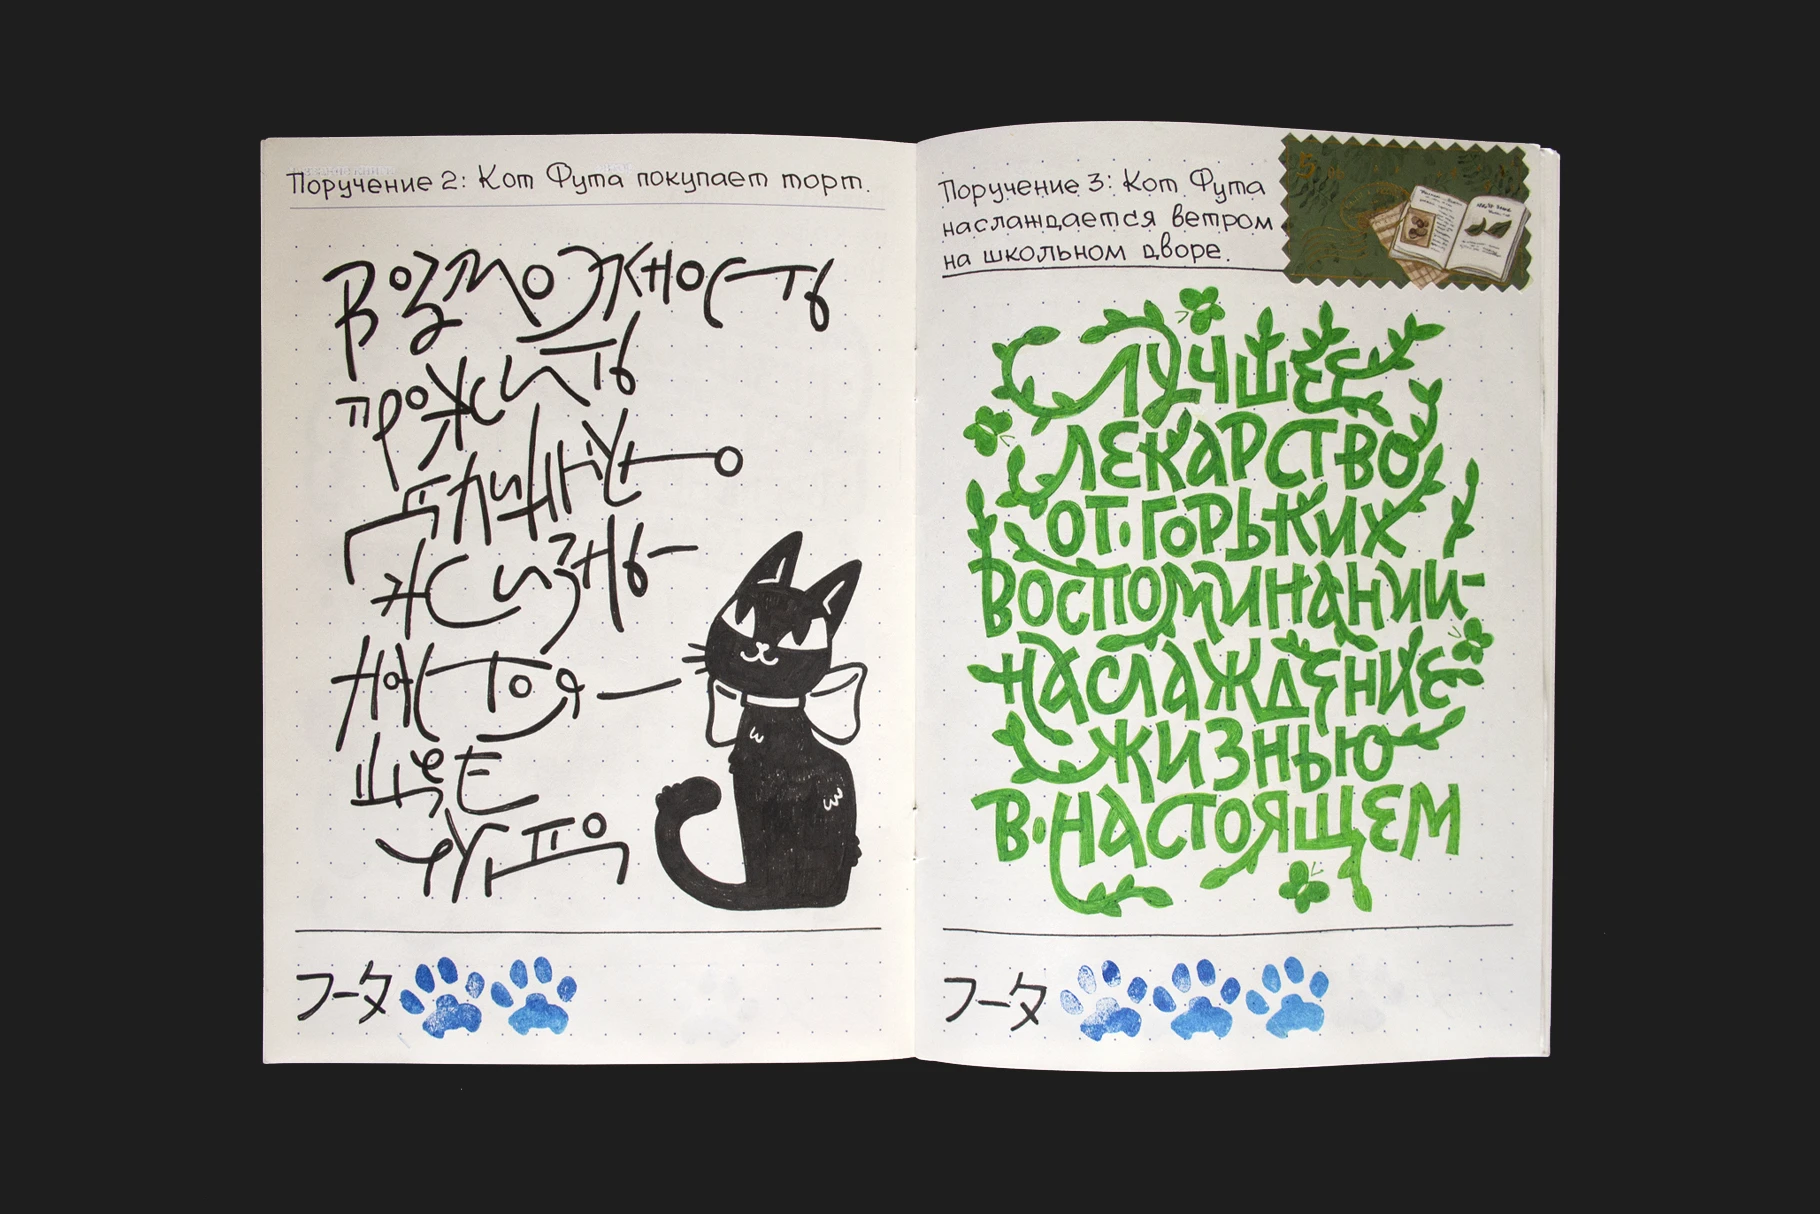 Поручение 2: Кот Фута покупает торт.
Возможность
прожить
длинную
жизнь –
настоя –
щее
чудо
フータ
Поручение 3: Кот Фута
наслаждается ветром
на школьном дворе.
Лучшее
лекарство
от горьких
воспоминаний -
наслаждение
жизнью
в настоящем
フータ